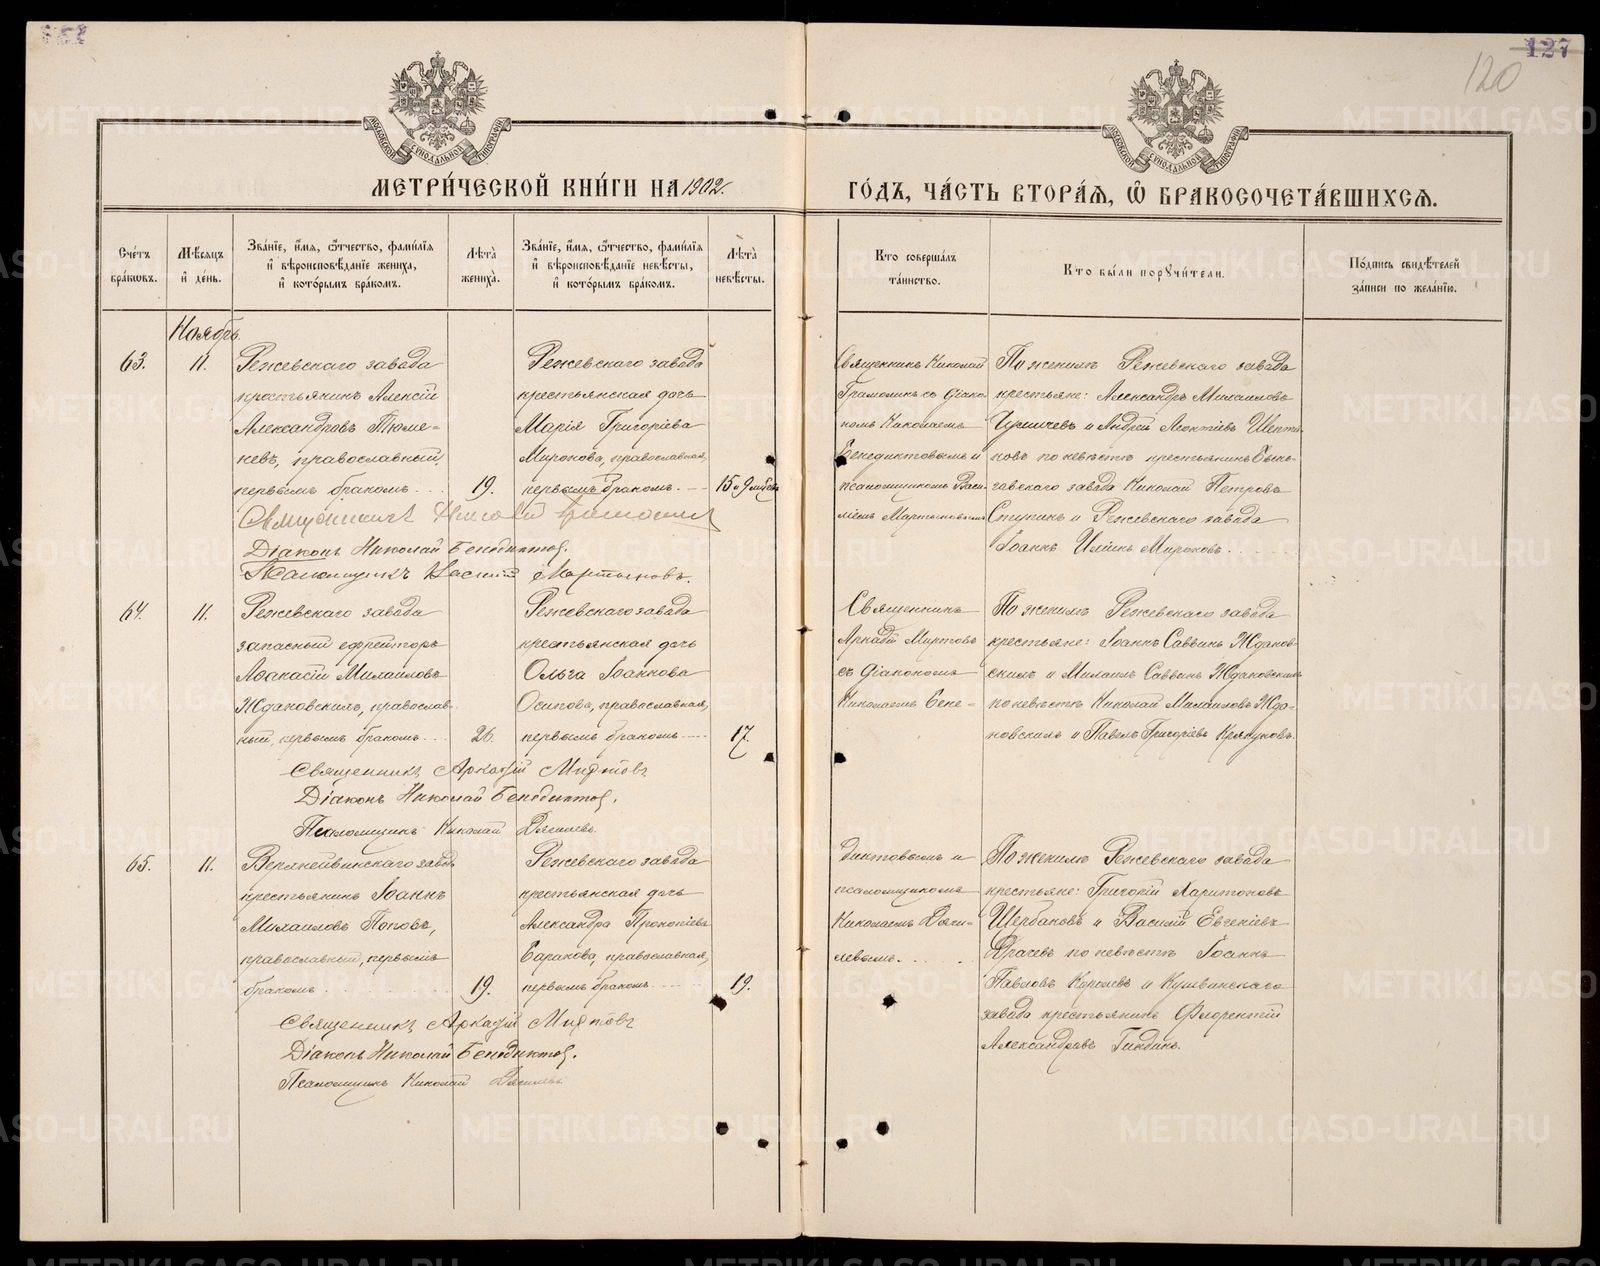 127
120
МОСКОВСКОЙ СѴНОДАЛЬНОЙ ТИПОГРАФІИ
МОСКОВСКОЙ СѴНОДАЛЬНОЙ ТИПОГРАФІИ
МЕТРИ́ЧЕСКОЙ КНИ́ГИ НА 1902 ГО́ДЪ, ЧА́СТЬ ВТОРА́Ѧ, Ѡ҆ БРАКОСОЧЕТА́ВШИХСѦ.
Сче́тъ бра́кѡвъ.
Мѣ́сѧцъ и҆ де́нь.
Зва́нїе, и҆́мѧ, ѻ҆́тчество, фами́лїѧ и҆ вѣроисповѣ́данїе жениха̀, и҆ кото́рымъ бра́комъ.
Лѣ́та̀ жениха̀.
Зва́нїе, и҆́мѧ, ѻ҆́тчество, фами́лїѧ и҆ вѣроисповѣ́данїе невѣ́сты, и҆ кото́рымъ бра́комъ.
Лѣ́та̀ невѣ́сты.
Кто̀ соверша́лъ та́инство.
Кто̀ бы́ли порꙋчи́тели.
По́дпись свидѣ́телей за́писи по жела́нїю.
Ноябрь.
63.
11.
Режевскаго завода
крестьянинъ Алексій
Александровъ Тюме-
невъ, православный,
первымъ бракомъ
19.
Режевскаго завода
крестьянская дочь
Марія Григоріева
Миронова, православная,
первымъ бракомъ
15 и 9 мѣсяц
Священникъ Николай
съ діако-
номъ Николаемъ
Бенедиктовымъ и
псаломщикомъ Васи-
ліемъ Мартыновымъ
По женихѣ Режевскаго завода
крестьяне: Александръ Михаиловъ
и Андрей Леонтіевъ
по невѣстѣ крестьянинъ
завода Николай Петровъ
Ступинъ и Режевскаго завода
Іоаннъ Ильинъ Мироновъ
Священникъ Николай
Діаконъ Николай Бенедиктов.
Псаломщикъ Василій Мартыновъ.
64.
11.
Режевскаго завода
запасный ефрейторъ
Аѳанасій Михаиловъ
Ждановскихъ, православ-
ный, первымъ бракомъ
26.
Режевскаго завода
крестьянская дочь
Ольга Іоаннова
Осипова, православная,
первымъ бракомъ
17.
Священникъ
Аркадій Миртовъ
съ діакономъ
Николаемъ Бене-
По женихѣ Режевскаго завода
крестьяне: Іоаннъ Саввинъ Жданов-
скихъ и Михаилъ Саввинъ Ждановскихъ
по невѣстѣ Николай Михаиловъ Жда-
новскихъ и Павелъ Григоріевъ
Священникъ Аркадій Миртовъ
Діаконъ Николай Бенедиктов.
Псаломщикъ Николай
65.
11.
Верхнейвинскаго завод
крестьянинъ Іоаннъ
Михаиловъ Поповъ,
православный, первымъ
бракомъ
19.
Режевскаго завода
крестьянская дочь
Александра Прокопіева
православная,
первымъ бракомъ
19.
диктовымъ и
псаломщикомъ
Николаемъ
левымъ.
По женихѣ Режевскаго завода
крестьяне: Григорій Харитоновъ
Щербаковъ и Василій Евгеніевъ
по невѣстѣ Іоаннъ
Павловъ Королевъ и Кушвинскаго
завода крестьянинъ Флорентій
Александровъ
Священникъ Аркадій Миртовъ
Діаконъ Николай Бенедиктов.
Псаломщикъ Николай
METRIKI.GASO-URAL.RU